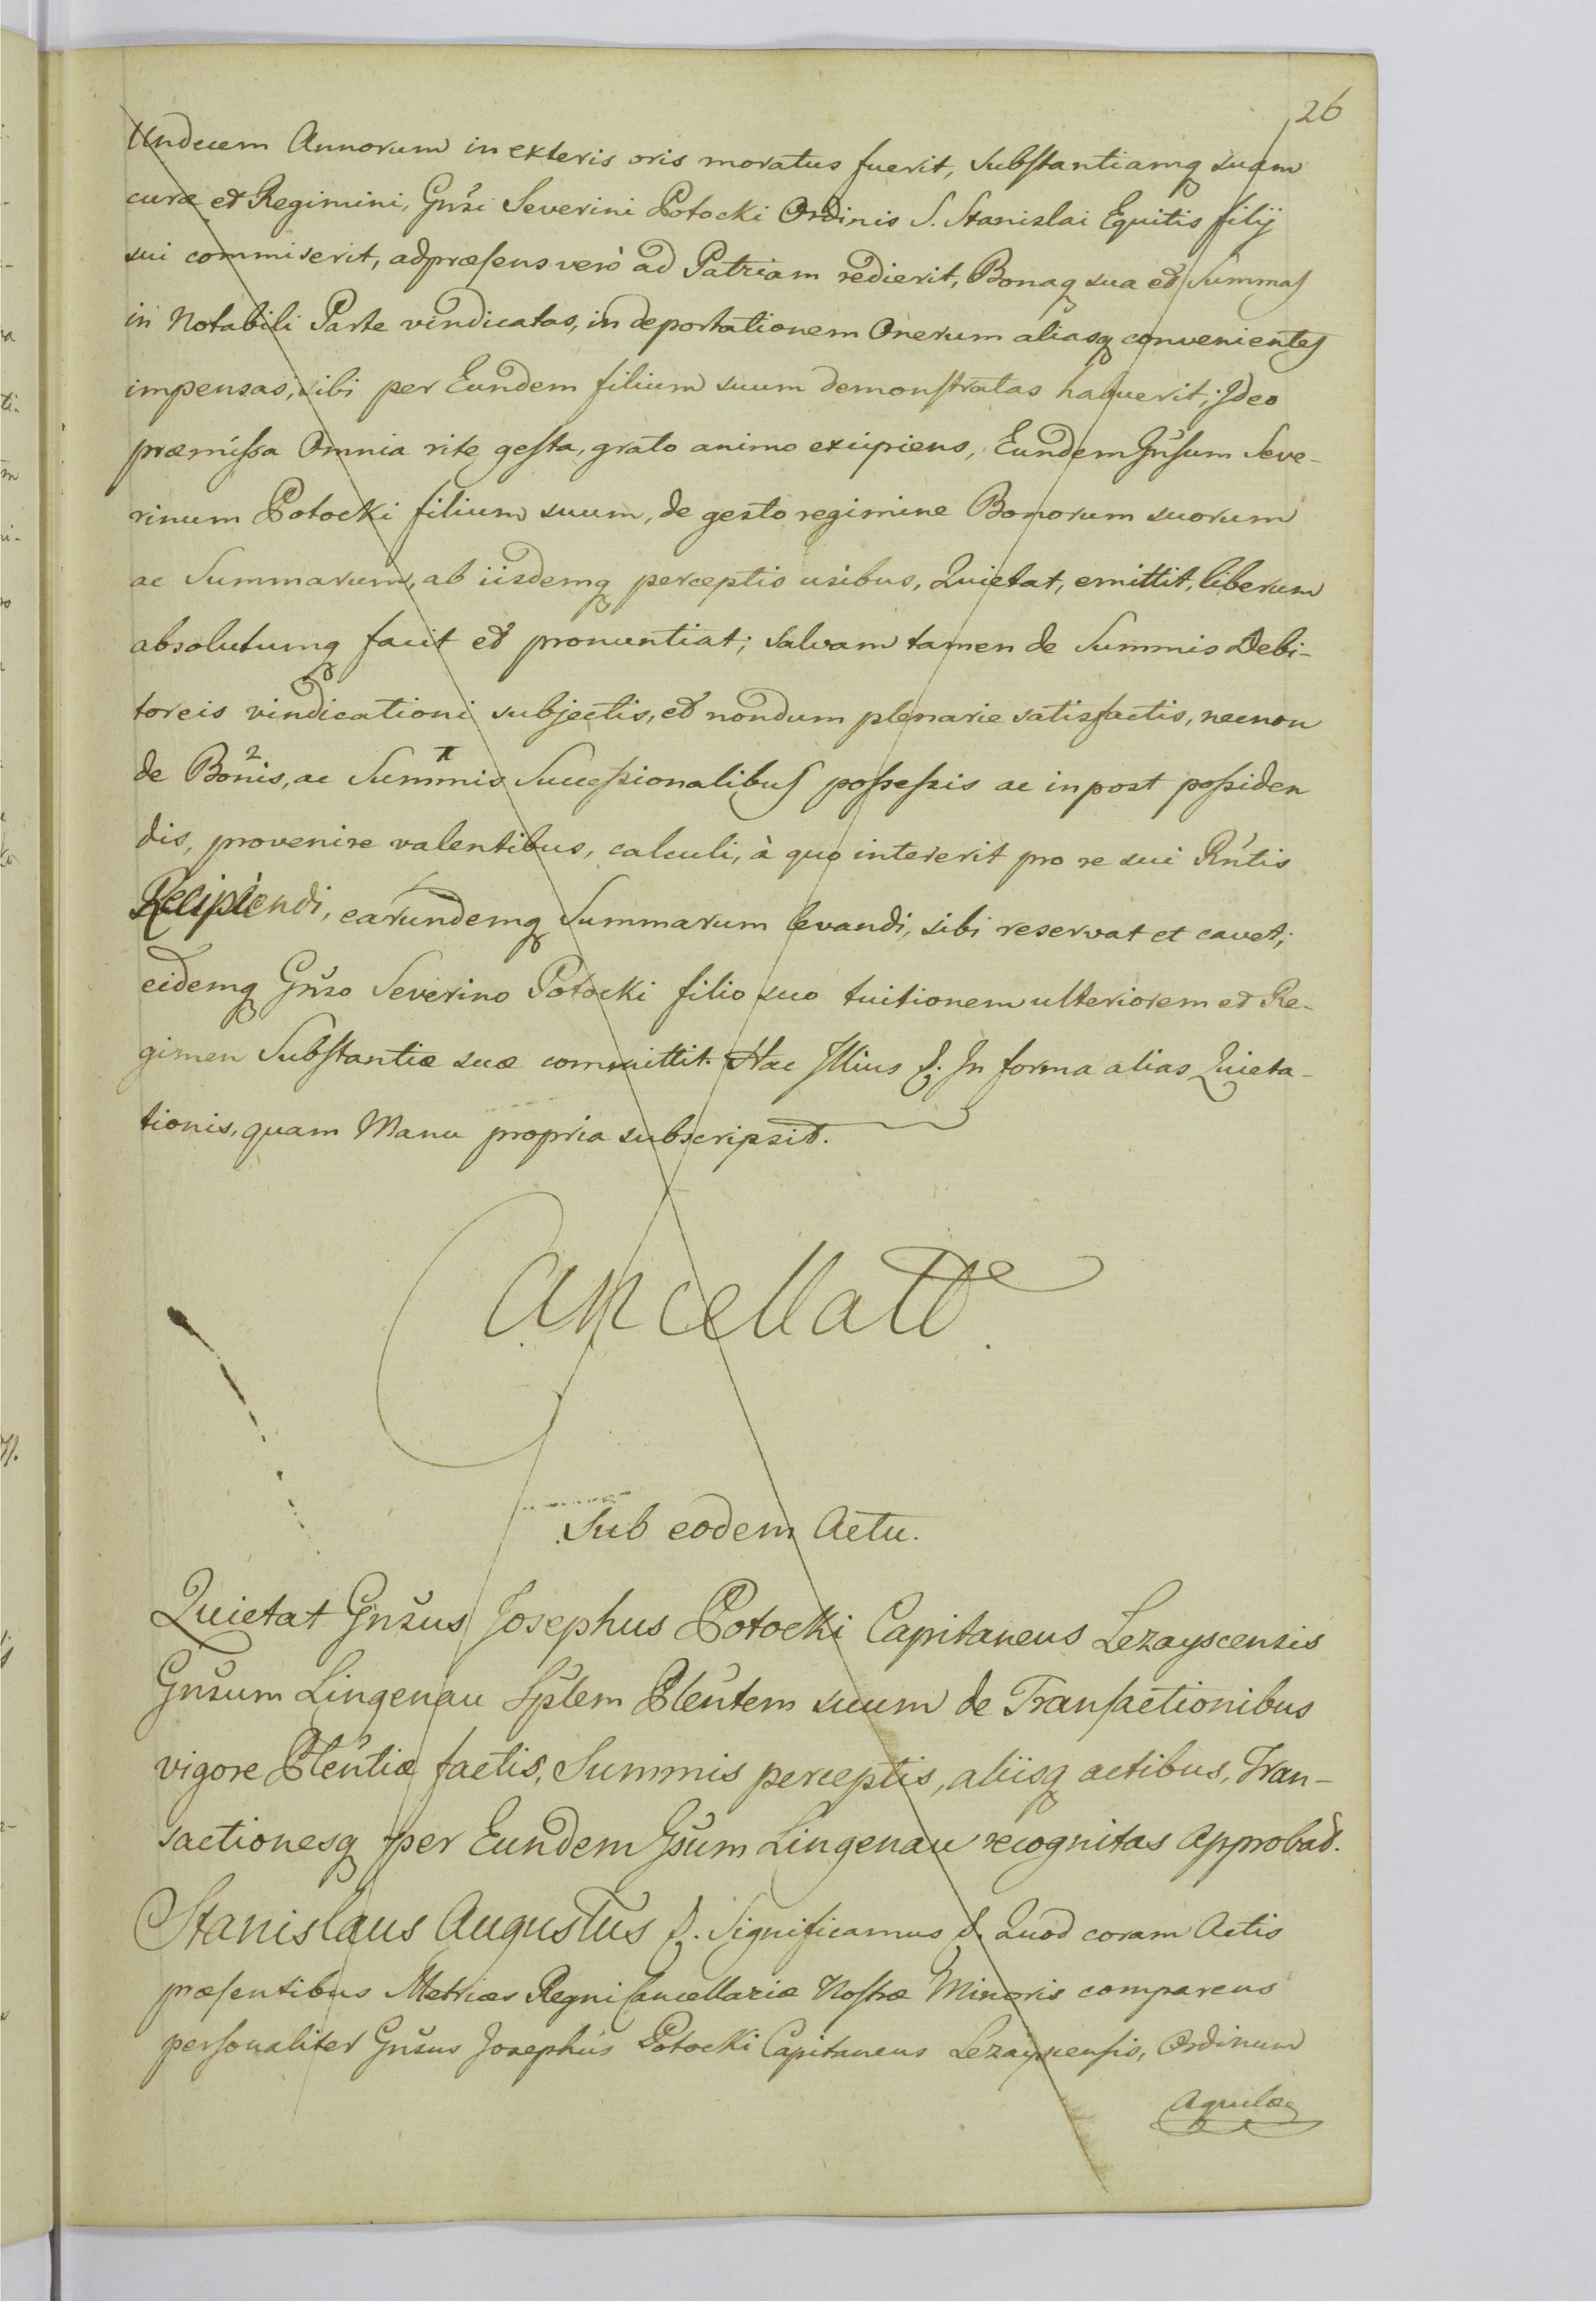 26
Undecem Annorum in exteris oris moratus fuerit, substantiamq suam
curæ et Regimini, Gnŝi Severini Potocki Ordinis S. Stanislai Equitis filij
sui commiserit, adpræsens verò ad Patriam redierit, Bonaq sua et Summas
in Notabili Parte vindicatas, in deportationem Onerum aliasq convenientes
impensas, sibi per Eundem filium suum demonstratas habuerit; Ideo
præmissa Omnia rite gesta, grato animo excipiens, Eundem Gnŝum Seve-
rinum Potocki filium suum, de gesto regimine Bonorum suorum
ac Summarum, ab iisdemq perceptis usibus, Quietat, emittit, liberum
absolutumq facit et pronuntiat; salvam tamen de Summis Debi-
toreis vindicationi subjectis, et nondum plenarie satisfactis, necnon
de Bonis, ac Summis Successionalibus possessis ac inpost possiden
dis, provenire valentibus, calculi, à quo intererit pro re sui Rńtis
Recipiendi, earundemq Summarum levandi, sibi reservat et cavet;
eidemq Gnŝo Severino Potocki filio suo tuitionem ulteriorem et Re-
gimen Substantiæ suæ committit. Hac Illius &. In forma alias Quieta-
tionis, quam Manu propria subscripsit.
Cancellat
Sub eodem Actu.
Quietat Gnŝus Josephus Potocki Capitaneus Lezayscensis
Gnŝum Lingenau Splem Pleńtem suum de Transactionibus
vigore Pleńtiæ factis, Summis perceptis, aliisq actibus, Tran-
sactionesq per Eundem Gŝum Lingenau recognitas Approbat.
Stanislaus Augustus &. Significamus &. Quod coram Actis
præsentibus Metrices Regni Cancellariæ Nostræ Minoris comparens
personaliter Gnŝus Josephus Potocki Capitaneus Lezayscensis, Ordinum
Aquilæ